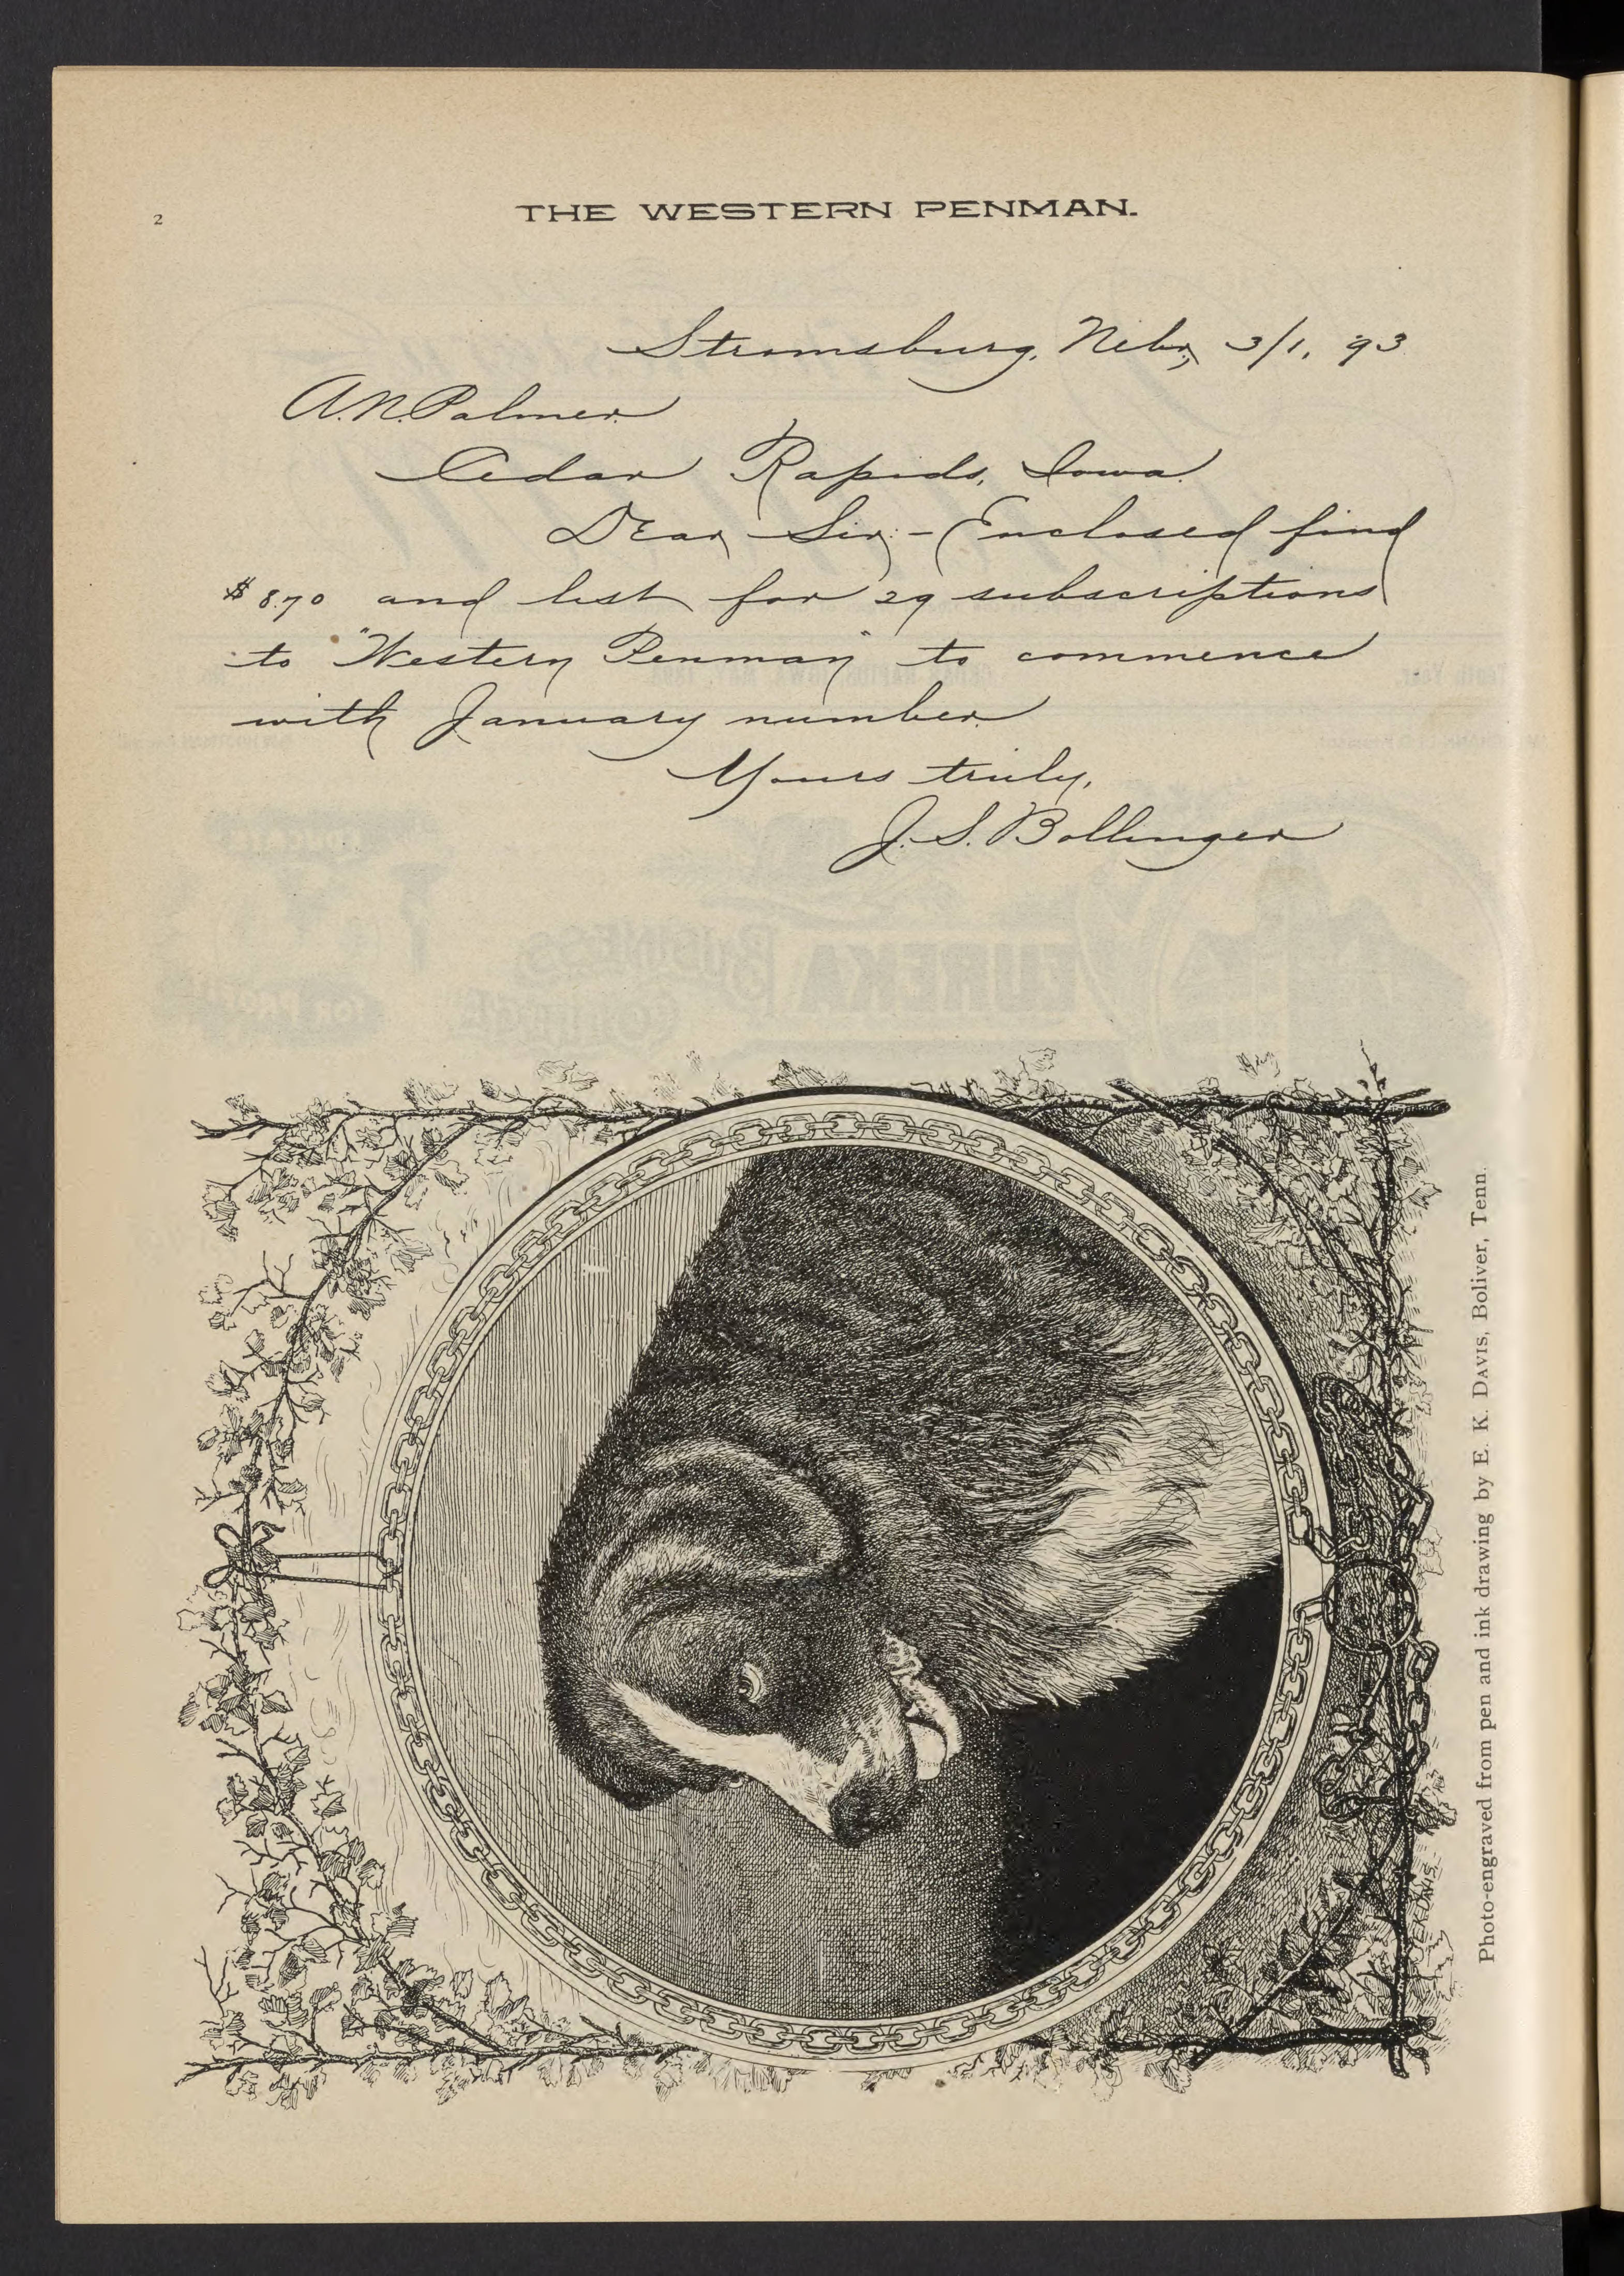 2
THE WESTERN PENMAN.
Stromsburg, Nebr, 3/1, 93
A. N. Palmer.
Cedar Rapids, Iowa.
Dear Sir:- Enclosed find
$8.70 and list for 29 subscriptions
to "Western Penman" to commence
with January number.
Yours truly,
J. S. Bollinger
Photo-engraved from pen and ink drawing by E. K. DAVIS, Boliver, Tenn.
E.K. DAVIS.